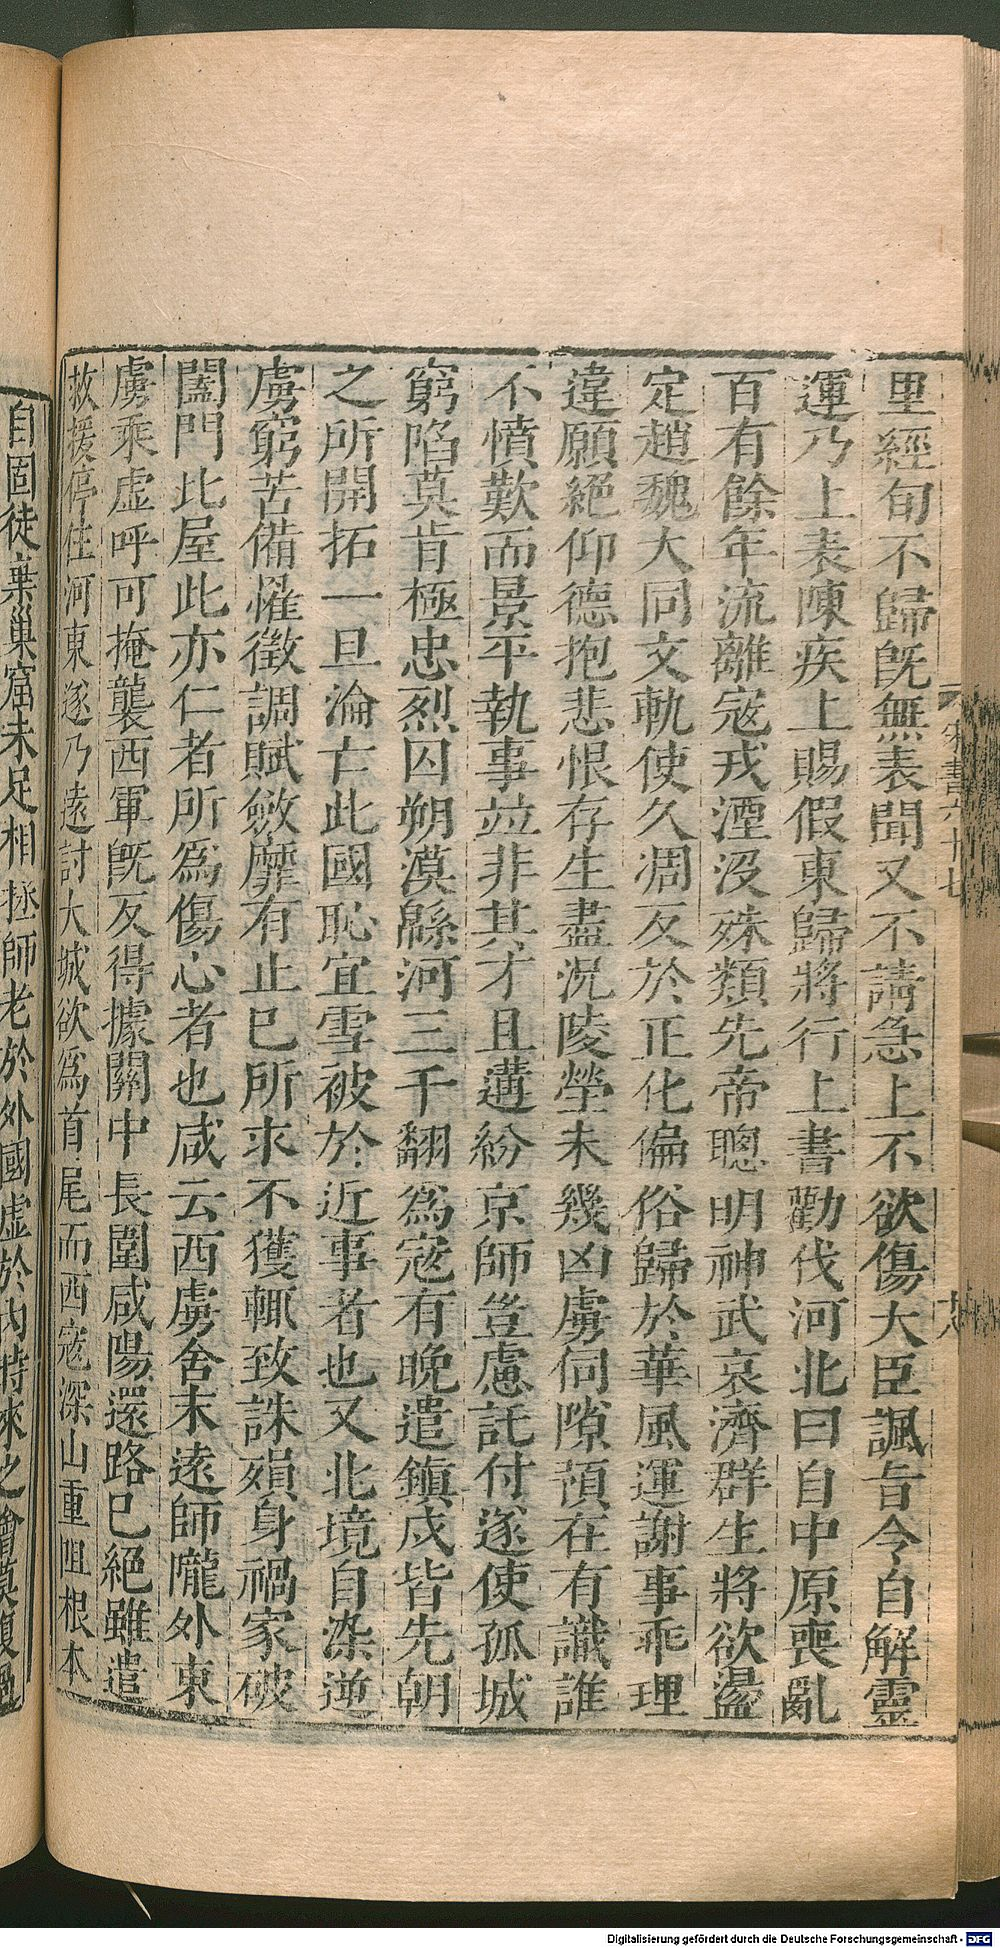 里經旬不歸旣無表聞又不請急上不欲傷大臣諷旨令自解靈
運乃上表陳疾上賜假東歸將行上書勸伐河北曰自中原喪亂
百有餘年流離寇戎湮沒殊類先帝聰明神武哀濟群生將欲盪
定趙魏大同文軌使久凋反於正化偏俗歸於華風運謝事乖理
違願絶仰德抱悲恨存生盡況陵塋未幾凶虜伺隙預在有識誰
不憤歎而景平執事竝非其才且遘紛京師豈慮託付遂使孤城
窮陷莫肯極忠烈囚朔漠緜河三千翻爲寇有晚遣鎭戍皆先朝
之所開拓一旦淪亡此國恥宜雪被於近事者也又北境自染逆
虜窮苦備罹徵調賦斂靡有止已所求不獲輒致誅殞身禍家破
闔門比屋此亦仁者所爲傷心者也咸云西虜舍末遠師隴外東
虜乘虛呼可掩襲西軍旣反得據關中長圍咸陽還路已絶雖遣
救援停住河東遂乃遠討大城欲爲首尾而西寇深山重阻根本
自固徒棄巢窟未足相拯師老於外國虛於內時來之會莫復過
宋書六十七
十八
Digitalisierung gefördert durch die Deutsche Forschungsgemeinschaft - DFG